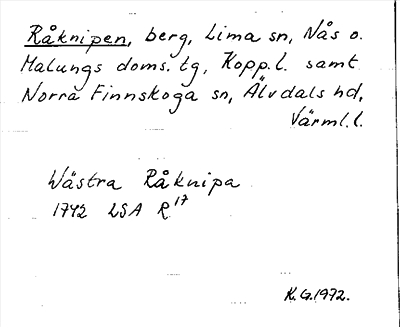 Råknipen, berg, Lima sn, Nås o.
Malungs doms. tg, Kopp. l. samt
Norra Finnskoga sn, Älvdals hd,
Värml. l.
Wästra Råknipa
1742 LSA R17
K.G. 1972.